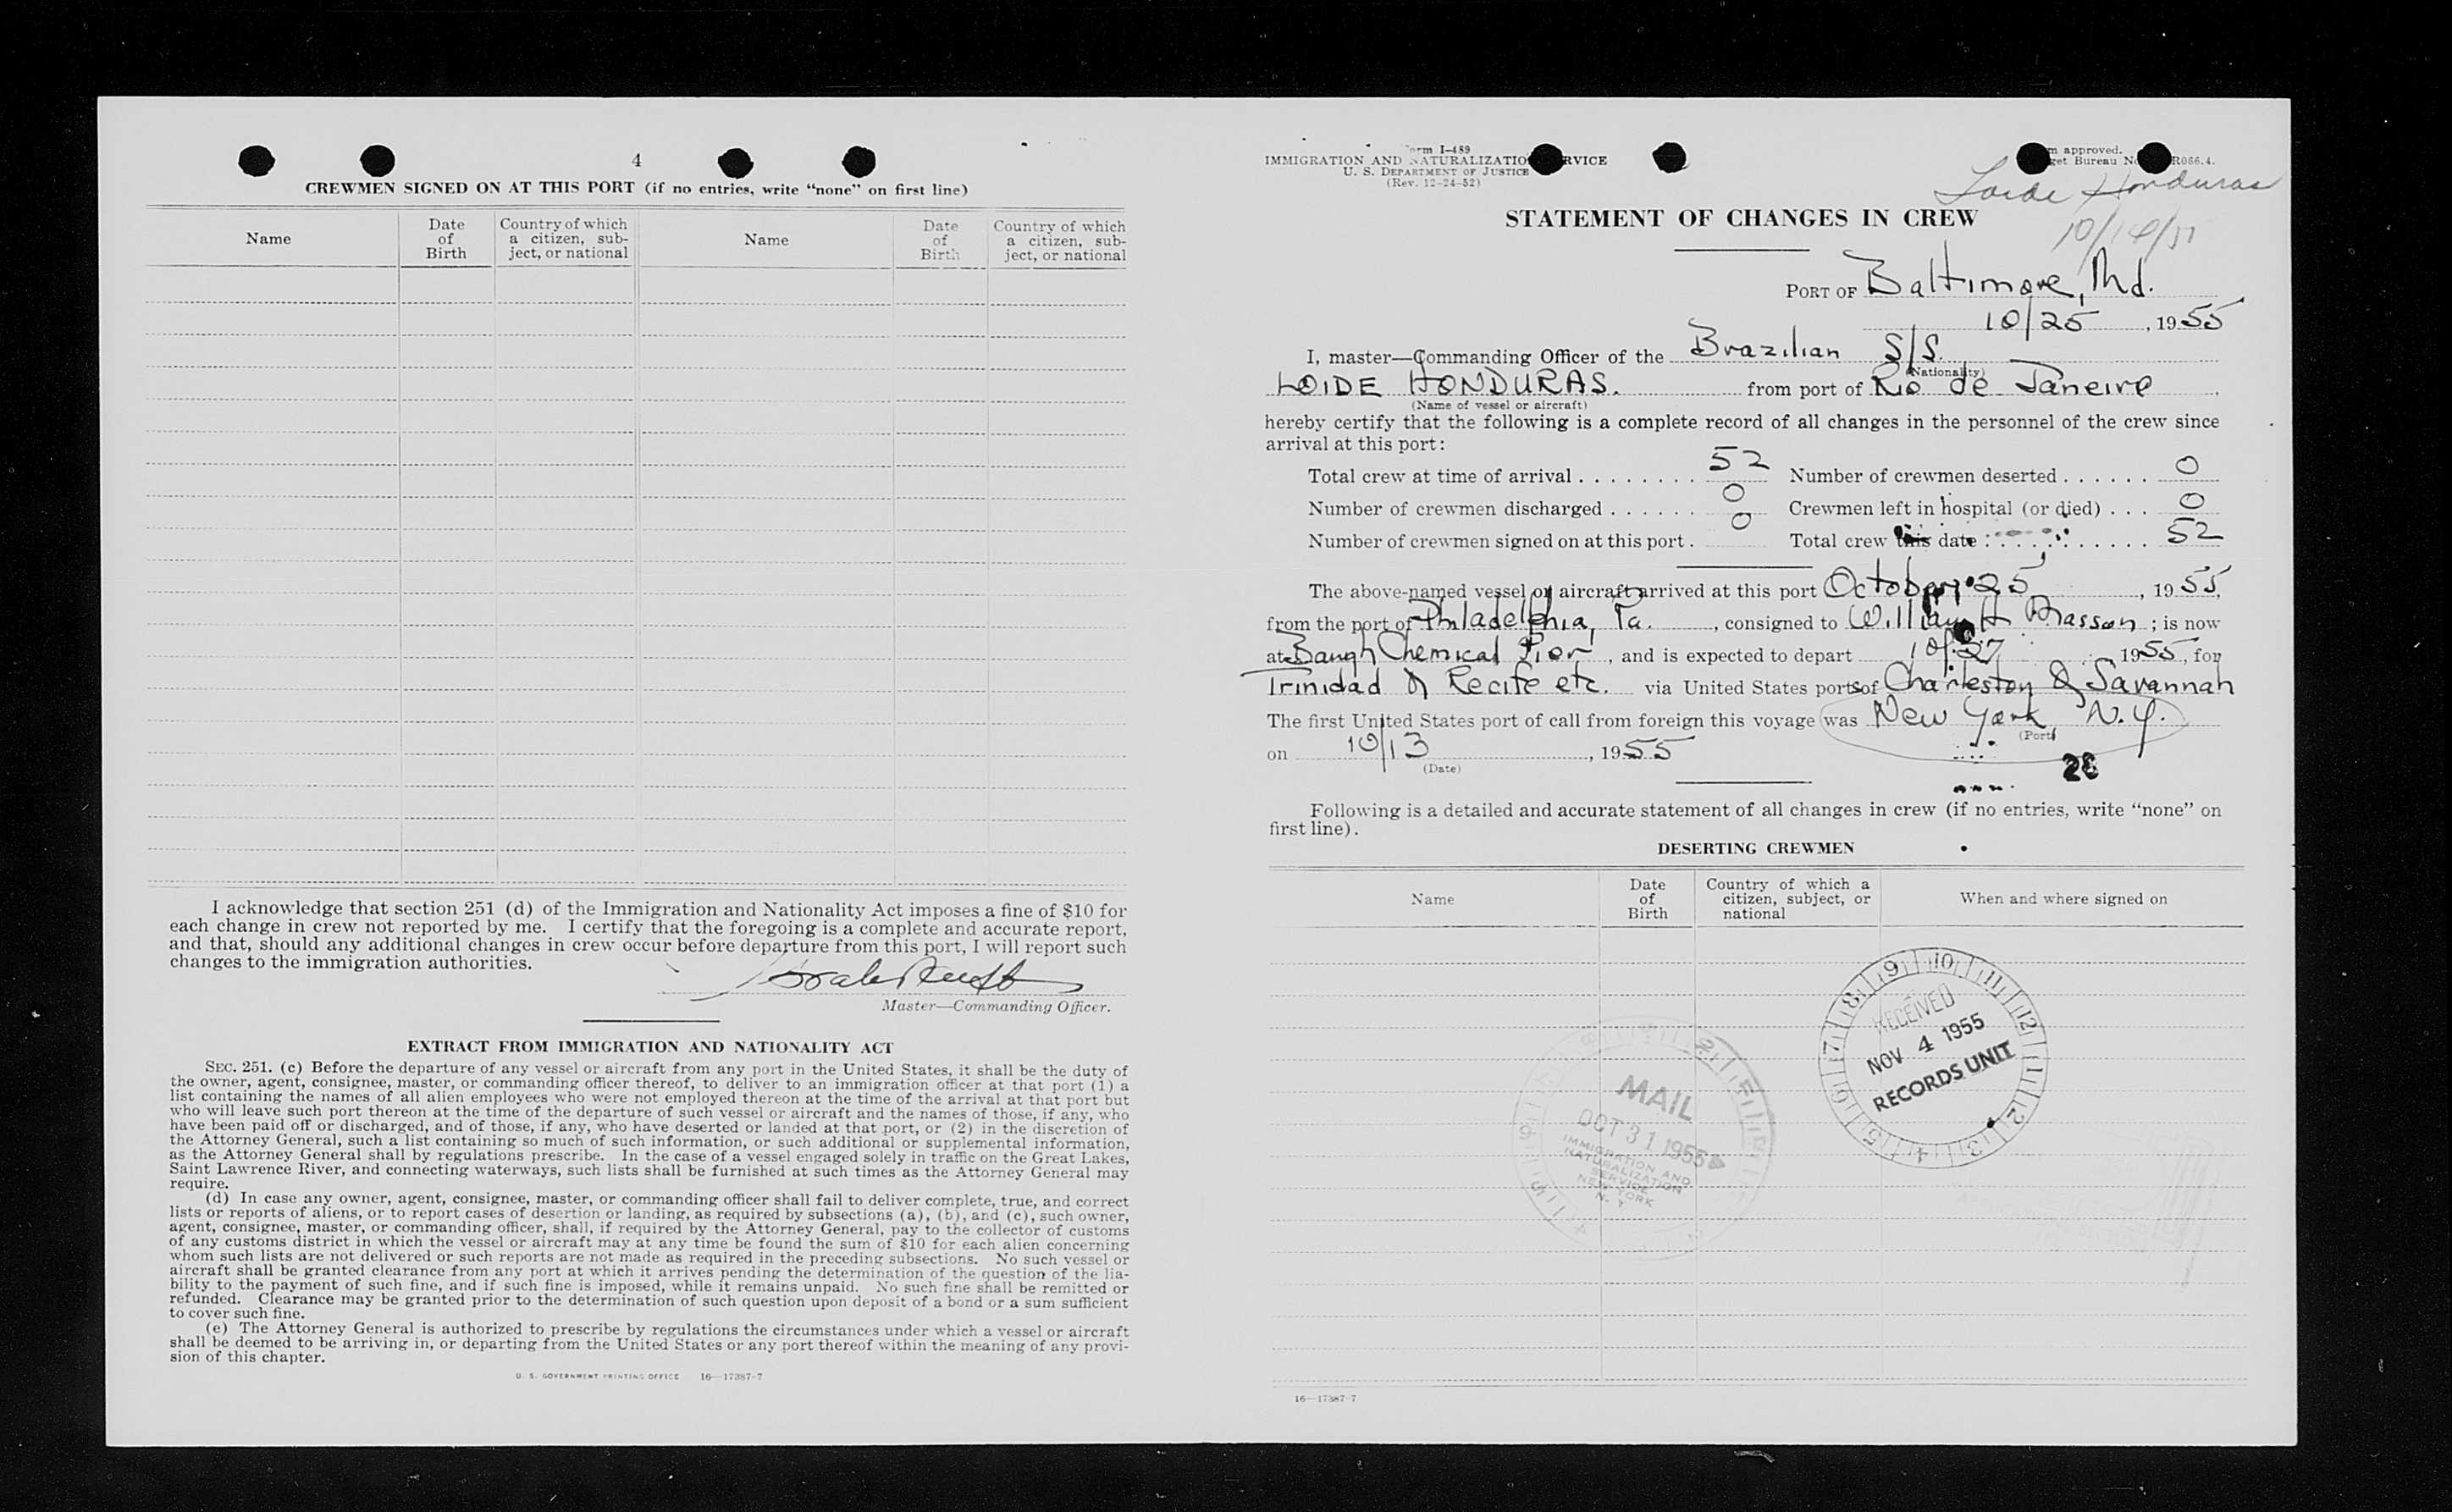 4
CREWMEN SIGNED ON AT THIS PORT (if no entries, write “none” on first line)
Name
Date of Birth
Country of which a citizen, sub-ject, or national
Name
Date of Birth
Country of which a citizen, sub-ject, or national
I acknowledge that section 251 (d) of the Immigration and Nationality Act imposes a fine of $10 for
each change in crew not reported by me. I certify that the foregoing is a complete and accurate report,
and that, should any additional changes in crew occur before departure from this port, I will report such
changes to the immigration authorities.
Master—Commanding Officer.
EXTRACT FROM IMMIGRATION AND NATIONALITY ACT
SEC. 251. (c) Before the departure of any vessel or aircraft from any port in the United States, it shall be the duty of
the owner, agent, consignee, master, or commanding officer thereof, to deliver to an immigration officer at that port (1) a
list containing the names of all alien employees who were not employed thereon at the time of the arrival at that port but
who will leave such port thereon at the time of the departure of such vessel or aircraft and the names of those, if any, who
have been paid off or discharged, and of those, if any, who have deserted or landed at that port, or (2) in the discretion of
the Attorney General, such a list containing so much of such information, or such additional or supplemental information,
as the Attorney General shall by regulations prescribe. In the case of a vessel engaged solely in traffic on the Great Lakes,
Saint Lawrence River, and connecting waterways, such lists shall be furnished at such times as the Attorney General may
require.
(d) In case any owner, agent, consignee, master, or commanding officer shall fail to deliver complete, true, and correct
lists or reports of aliens, or to report cases of desertion or landing, as required by subsections (a), (b), and (c), such owner,
agent, consignee, master, or commanding officer, shall, if required by the Attorney General, pay to the collector of customs
of any customs district in which the vessel or aircraft may at any time be found the sum of $10 for each alien concerning
whom such lists are not delivered or such reports are not made as required in the preceding subsections. No such vessel or
aircraft shall be granted clearance from any port at which it arrives pending the determination of the question of the lia-
bility to the payment of such fine, and if such fine is imposed, while it remains unpaid. No such fine shall be remitted or
refunded. Clearance may be granted prior to the determination of such question upon deposit of a bond or a sum sufficient
to cover such fine.
(e) The Attorney General is authorized to prescribe by regulations the circumstances under which a vessel or aircraft
shall be deemed to be arriving in, or departing from the United States or any port thereof within the meaning of any provi-
sion of this chapter.
U. S. GOVERNMENT PRINTING OFFICE 16—17387-7
I-489
IMMIGRATION AND NATURALIZATIO RVICE
U. S. DEPARTMENT OF JUSTICE
(Rev. 12-24-52)
approved.
Bureau R066.4.
Loide Honduras
STATEMENT OF CHANGES IN CREW
PORT OF Baltimore, Md.
10/25, 1955
I, master—Commanding Officer of the Brazilian S/S.
(Nationality)
LOIDE HONDURAS. from port of Rio de Janeiro
(Name of vessel or aircraft)
hereby certify that the following is a complete record of all changes in the personnel of the crew since
arrival at this port:
Total crew at time of arrival . . . . . . . . 52 Number of crewmen deserted . . . . . . 0
Number of crewmen discharged . . . . . . 0 Crewmen left in hospital (or died) . . . 0
Number of crewmen signed on at this port . 0 Total crew this date . . . . . . . . . . 52
The above-named vessel or aircraft arrived at this port October 25, 1955,
from the port of Philadelphia, Pa., consigned to William H Masson; is now
at Baugh Chemical Pier, and is expected to depart 10/27 1955, for
Trinidad & Recife etc. via United States ports of Charleston & Savannah
The first United States port of call from foreign this voyage was New York N.Y.
(Port)
on 10/13, 1955
(Date)
28
Following is a detailed and accurate statement of all changes in crew (if no entries, write “none” on
first line).
DESERTING CREWMEN
Name
Date of Birth
Country of which a citizen, subject, or national
When and where signed on
RECEIVED
NOV 4 1955
RECORDS UNIT
9 10 11 12 1 2 3 4 5 6 7 8
MAIL
OCT 31 1955
IMMIGRATION AND
NATURALIZATION
SERVICE
NEW YORK
N. Y.
16—17387-7